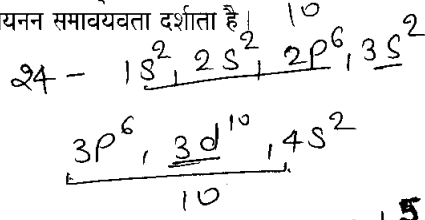 यनन समावयवता दर्शाता है।
10
24 - 1s², 2s², 2p⁶, 3s²
3p⁶, 3d¹⁰, 4s²
10
5